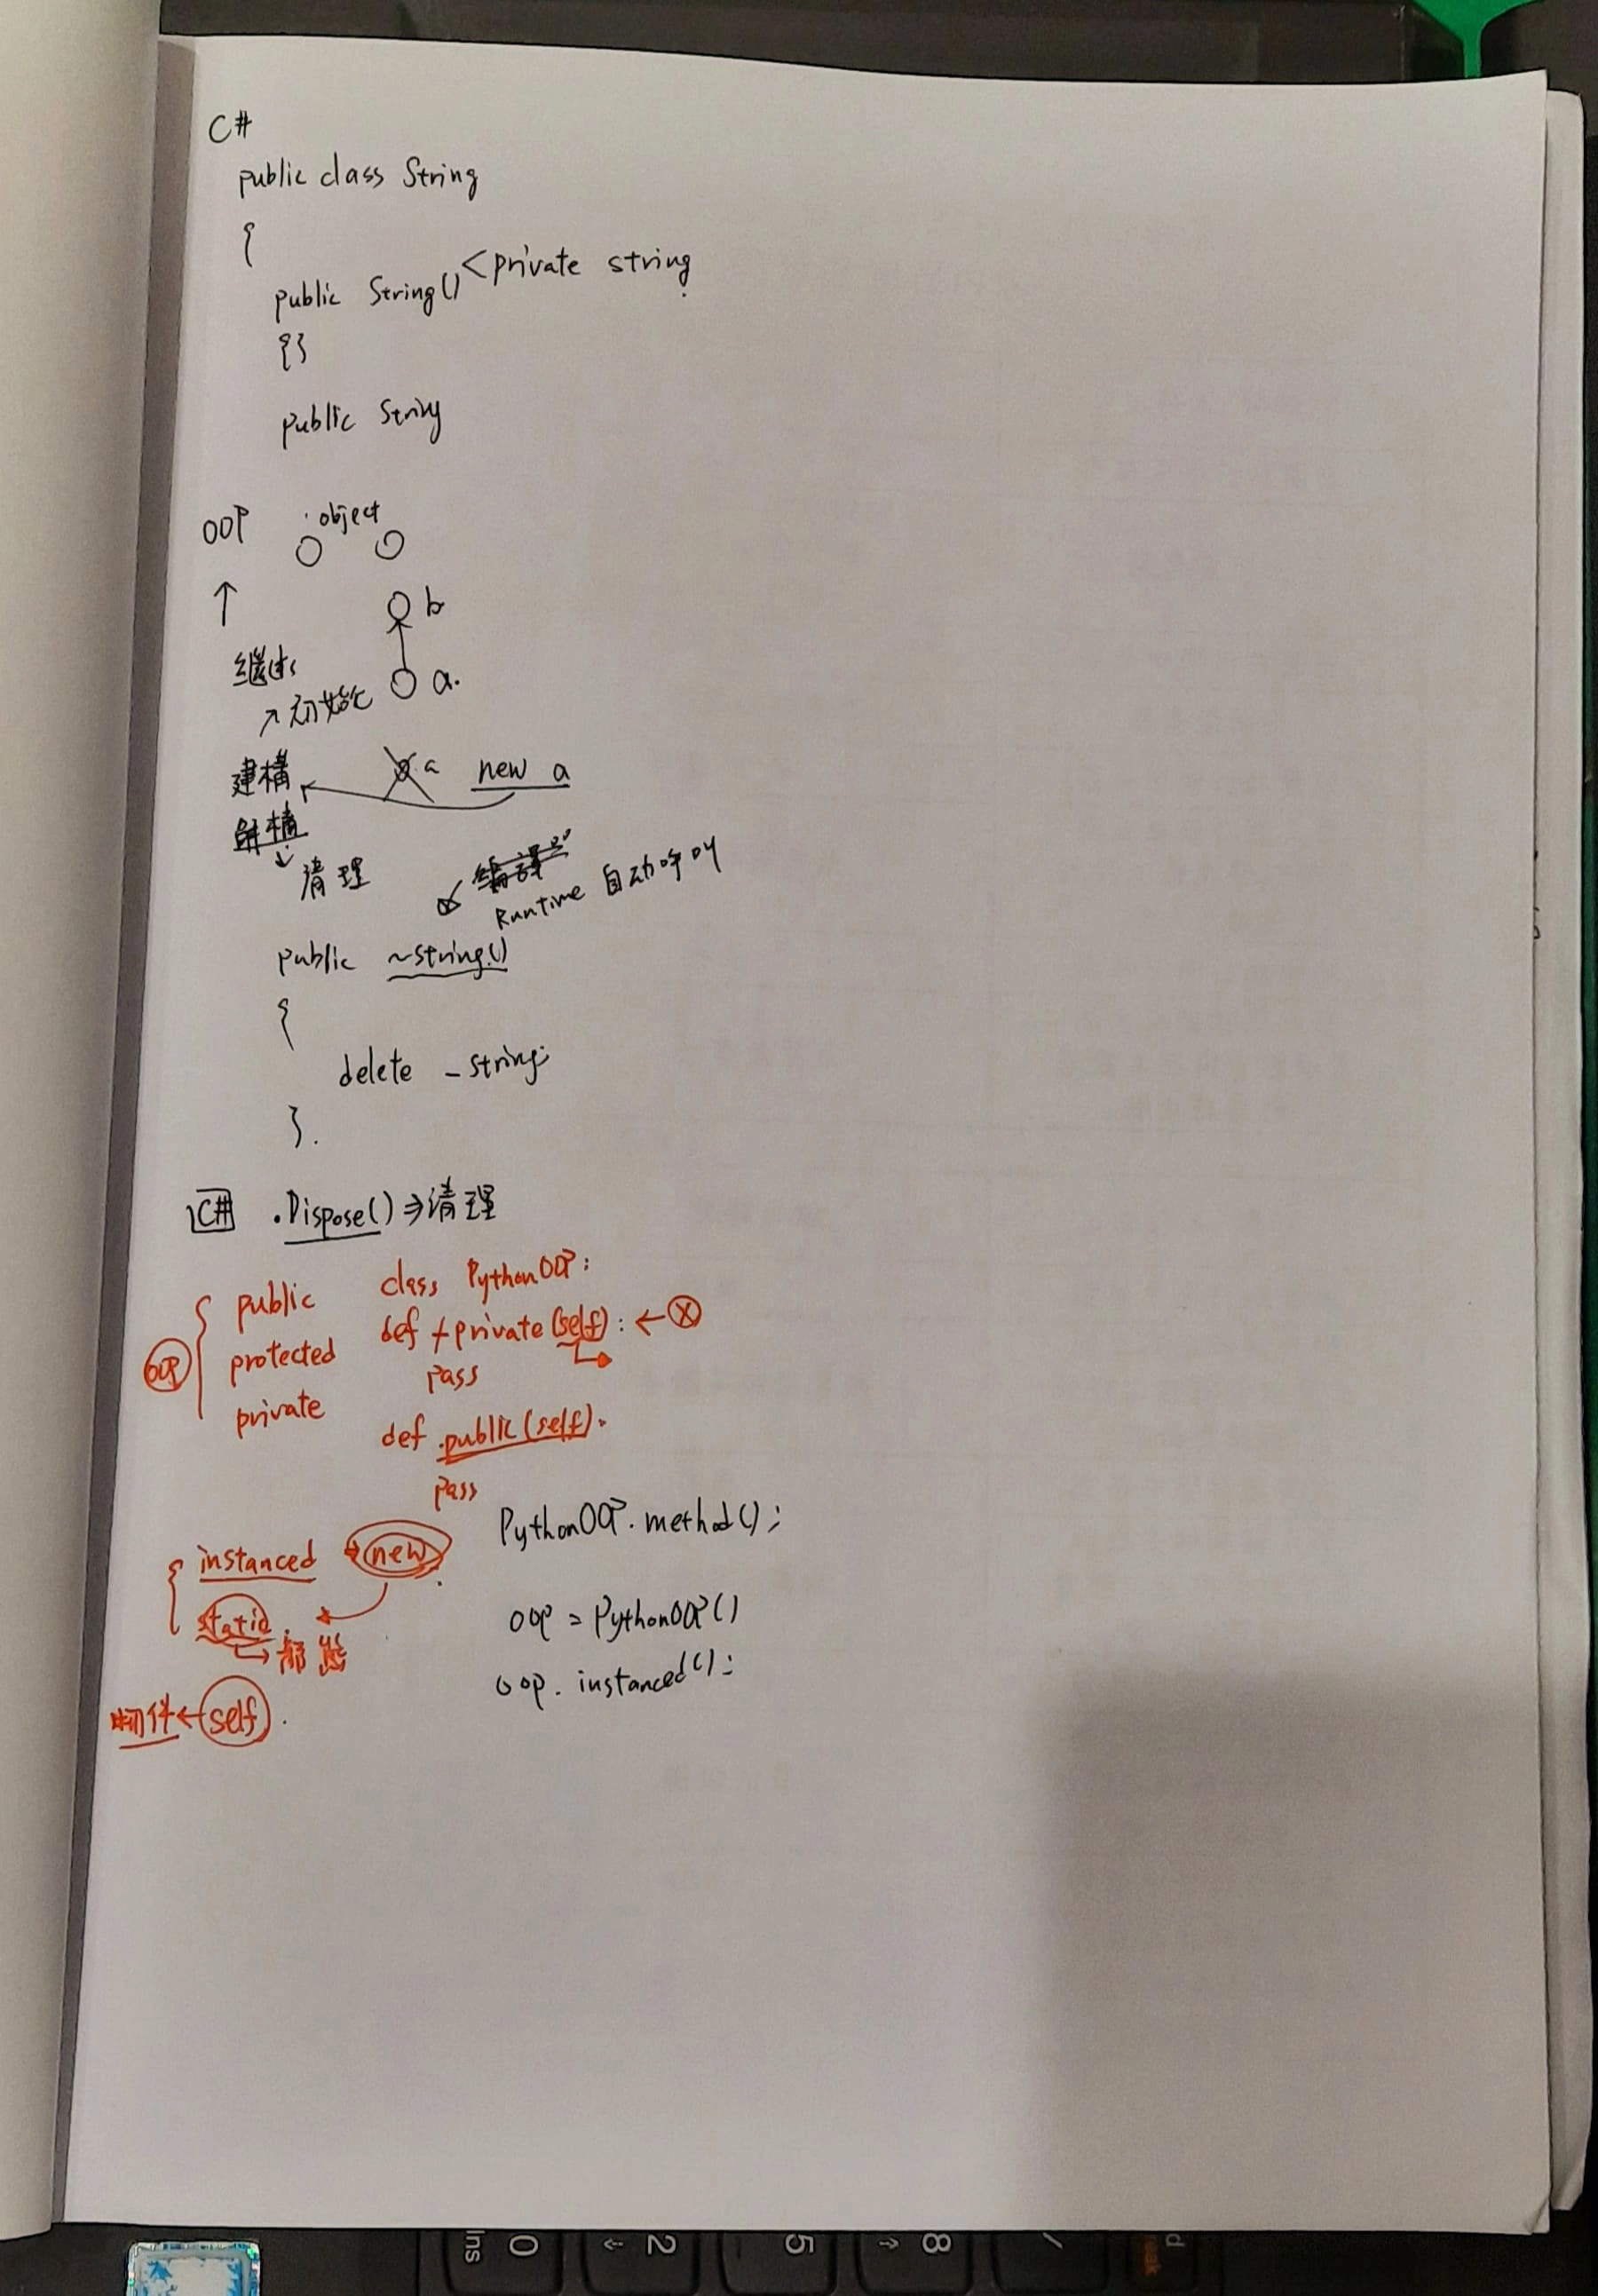 C#
public class String
{
public String() < private string
{}
public String
OOP object
↑ b
继承 a.
↗ 初始化
建構 a new a
解構
↓ 清理
編譯器
Runtime 自动呼叫
public ~string()
{
delete _string;
}.
C# .Dispose() ⇒ 清理
OOP { public
protected
private
class PythonOOP:
def +private(self): ← ⓧ
pass
def .public(self):
pass
{ instanced → new
static → 都能
物件 ← self.
PythonOOP.method();
oop = PythonOOP()
oop. instanced();
Ins 0 2 5 8 /